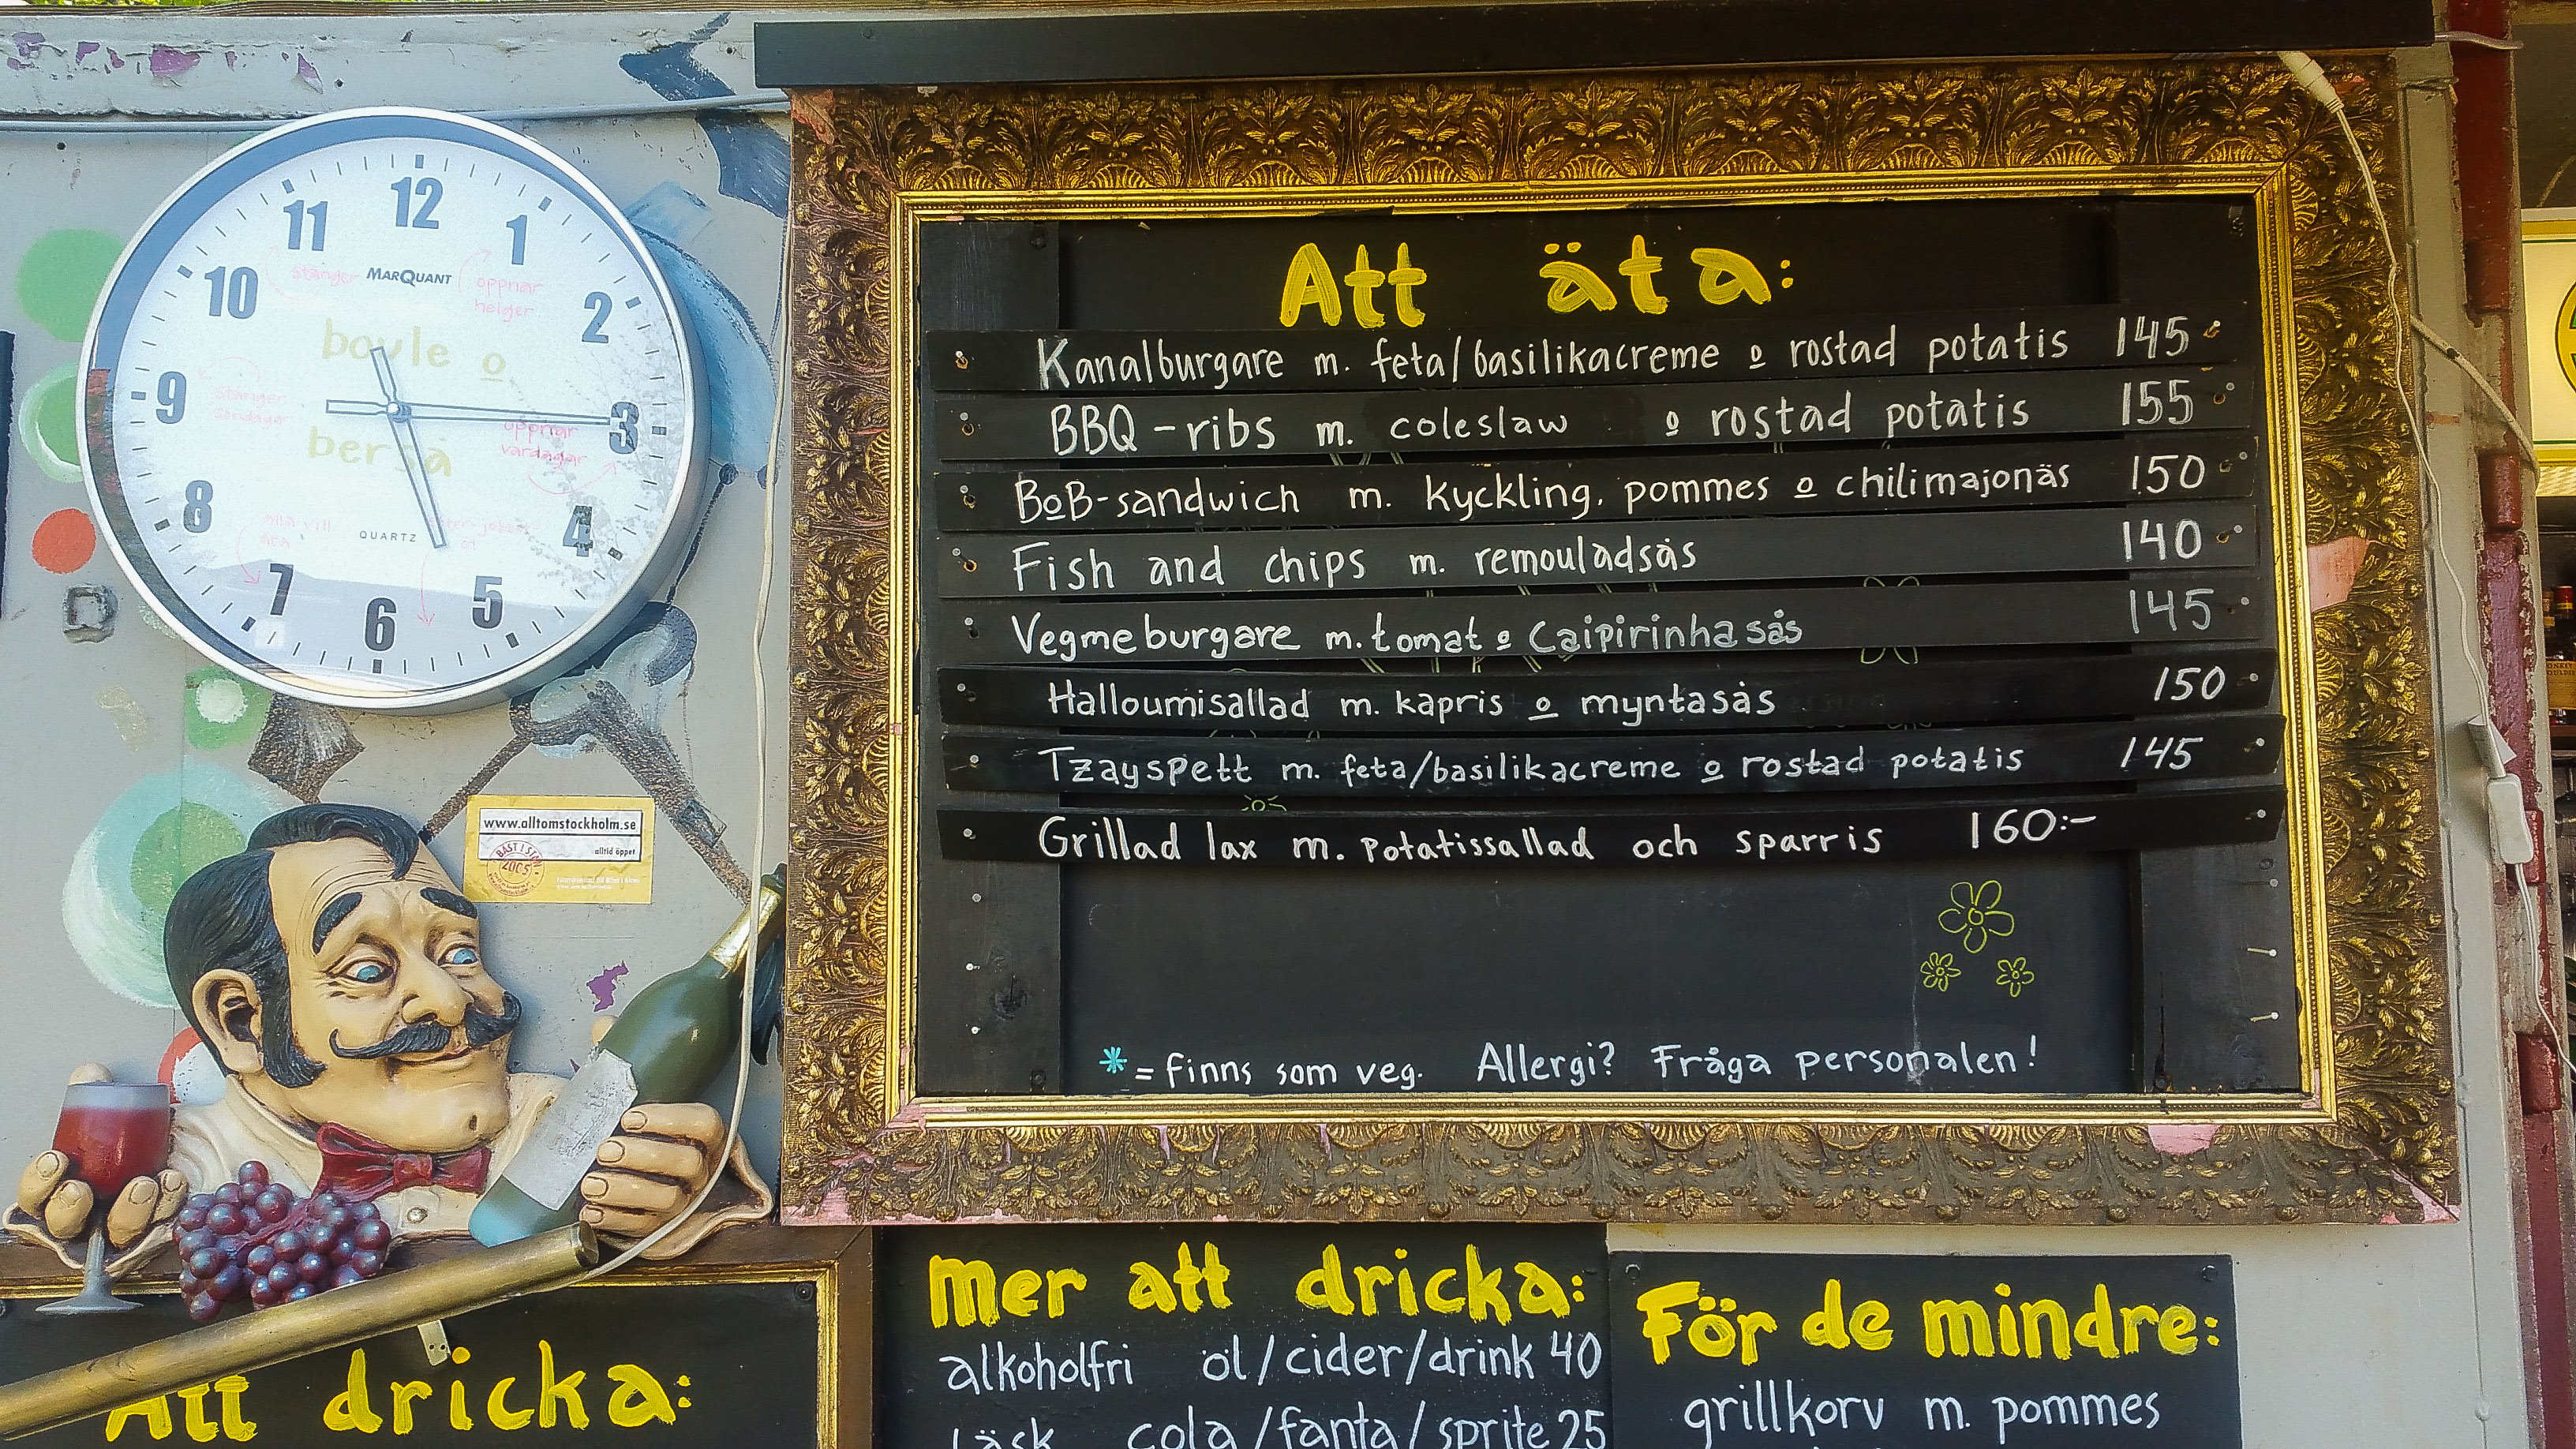 12
11 1
10 2
9 3
8 4
7 5
6
MARQUANT
stänger
öppnar
helger
boule o
berså
stänger
söndagar
öppnar
vardagar
alla vill
QUARTZ
www.alltomstockholm.se
alltid öppet
BÄST I STAN
2005
Att äta:
Kanalburgare m. feta/basilikacreme o rostad potatis 145
BBQ-ribs m. coleslaw o rostad potatis 155
BoB-sandwich m. kyckling, pommes o chilimajonäs 150
Fish and chips m. remouladsås 140
Vegmeburgare m. tomat o Caipirinhasås 145
Halloumisallad m. kapris o myntasås 150
Tzayspett m. feta/basilikacreme o rostad potatis 145
Grillad lax m. potatissallad och sparris 160:-
* = finns som veg. Allergi? Fråga personalen!
Att dricka:
mer att dricka:
alkoholfri öl/cider/drink 40
läsk cola/fanta/sprite 25
För de mindre:
grillkorv m. pommes